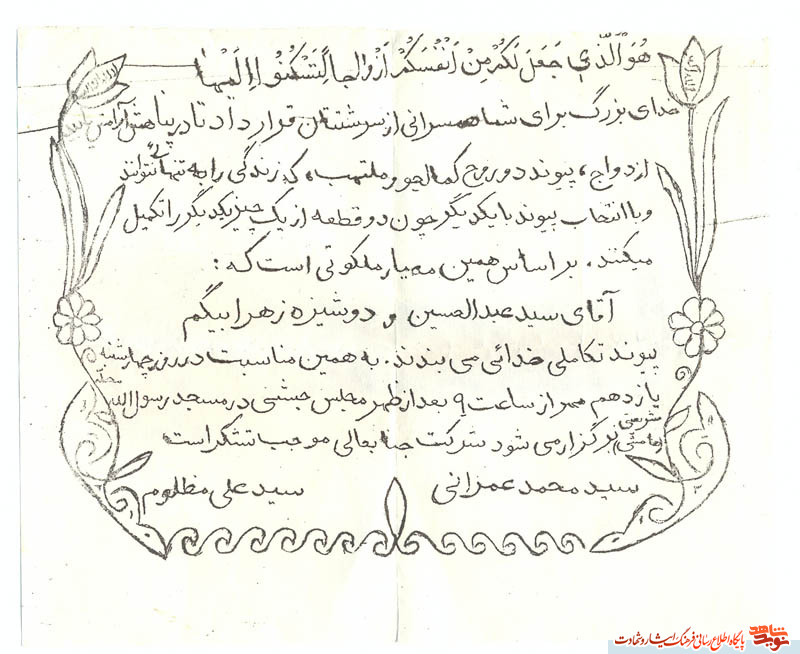 هُوَ الَّذی جَعَلَ لَکُمْ مِنْ اَنْفُسَکُمْ اَزْواجاً لِتَسْکُنُوا اِلَیْها
خدای بزرگ برای شما همسرانی از سرشتتان قرار داد تا در پناهش آرامش
ازدواج، پیوند دو روح کمالجو و ملتهب، که زندگی را به تنهائی نتوانند
و با انتخاب پیوند با یکدیگر چون دو قطعه از یک چیز یکدیگر را تکمیل
میکنند. بر اساس همین معیار ملکوتی است که:
آقای سید عبدالحسین و دوشیزه زهرا بیگم
پیوند تکاملی خدائی می بندند. به همین مناسبت در روز چهارشنبه
یازدهم مهر از ساعت ۹ بعد از ظهر مجلس جشنی در مسجد رسول الله محله
شریعتی برگزار می شود شرکت جنابعالی موجب تشکر است
سید محمد عمرانی سید علی مظلوم
نوید شاهد پایگاه اطلاع رسانی فرهنگ ایثار و شهادت